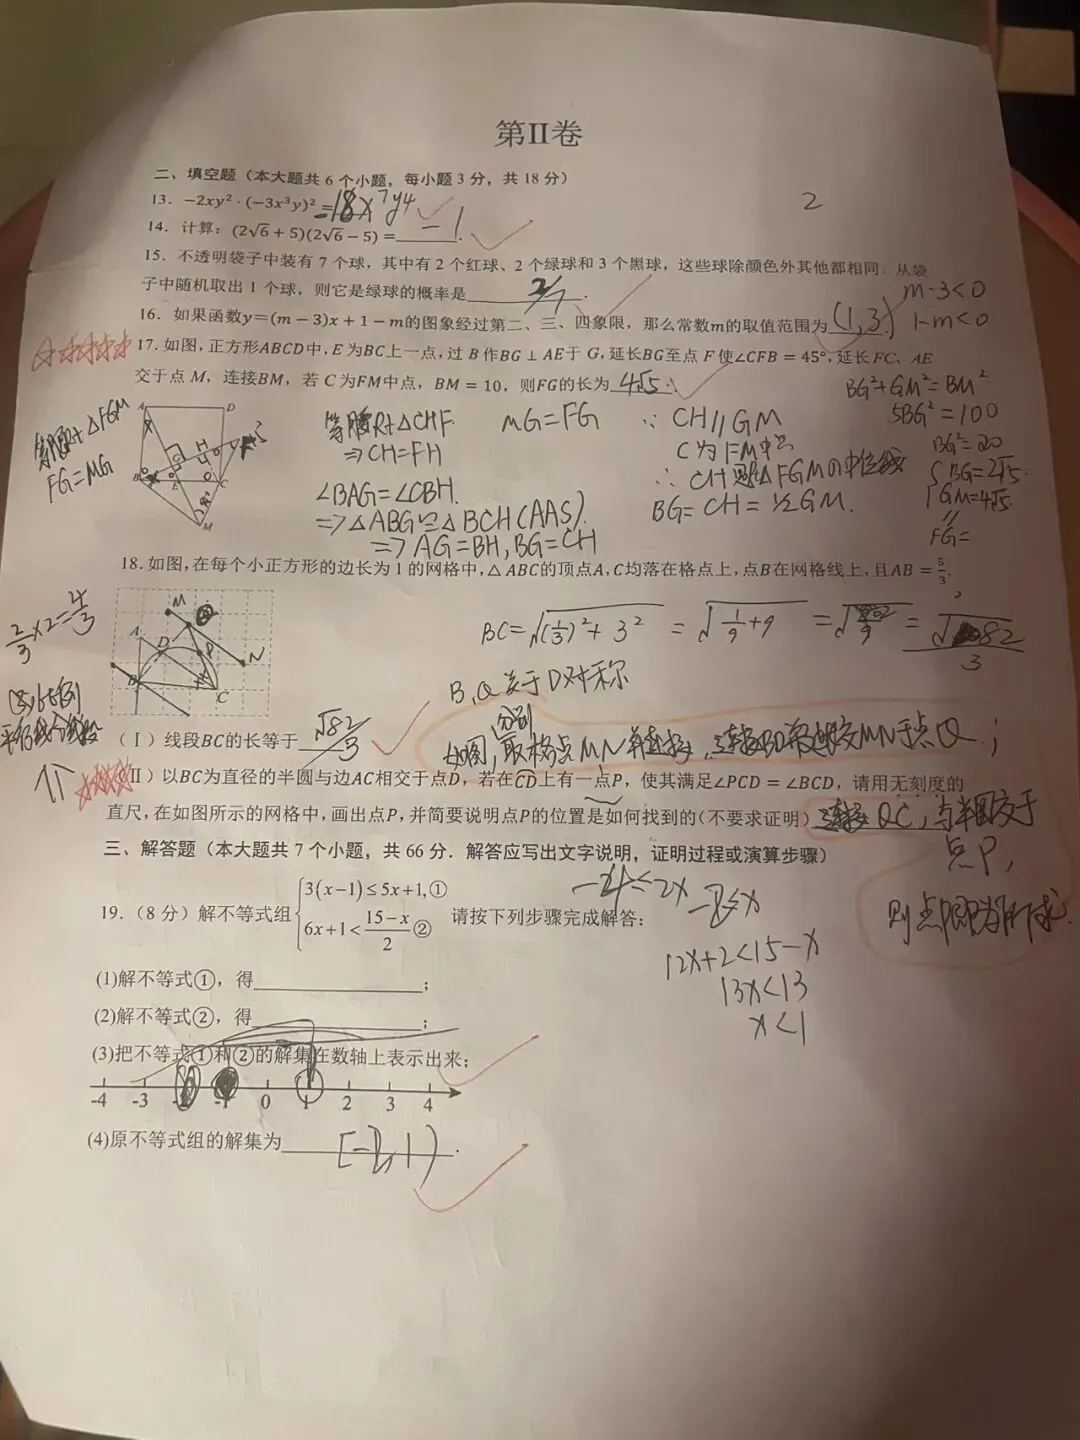 第Ⅱ卷
二、填空题（本大题共 6 个小题，每小题 3 分，共 18 分）
2
13. −2xy²·(−3x³y)²=18x⁷y4
14. 计算：(2√6+5)(2√6−5)=−1.
15. 不透明袋子中装有 7 个球，其中有 2 个红球、2 个绿球和 3 个黑球，这些球除颜色外其他都相同．从袋
子中随机取出 1 个球，则它是绿球的概率是 2/7.
m-3<0
16. 如果函数y=(m−3)x+1−m的图象经过第二、三、四象限，那么常数m的取值范围为 (1,3)
1-m<0
17. 如图，正方形ABCD中，E为BC上一点，过 B 作BG⊥AE于 G，延长BG至点 F 使∠CFB=45°，延长 FC、AE
交于点 M，连接BM，若 C 为FM中点，BM=10，则FG的长为 4√5.
BG²+GM²=BM²
5BG²=100
BG²=20
BG=2√5
GM=4√5
FG=
等腰Rt△FGM
FG=MG
A D
B E C
M
等腰Rt△CHF
⇒CH=FH
∠BAG=∠CBH.
⇒△ABG≌△BCH(AAS).
⇒AG=BH, BG=CH
MG=FG
∵ CH//GM
C为FM中点
∴ CH是△FGM的中位线
BG=CH=½GM.
18. 如图，在每个小正方形的边长为 1 的网格中，△ABC的顶点A，C均落在格点上，点B在网格线上，且AB=5/3.
2/3×2=4/3
M
A D P N
B C
BC=√(⅓)²+3² =√1/9+9 =√82/9 =√82/3
B,Q关于D对称
（Ⅰ）线段BC的长等于 √82/3
如图，分别取格点MN并连接，连接BD并延长交MN于点Q；
（Ⅱ）以BC为直径的半圆与边AC相交于点D，若在CD上有一点P，使其满足∠PCD=∠BCD，请用无刻度的
直尺，在如图所示的网格中，画出点P，并简要说明点P的位置是如何找到的（不要求证明）连接QC，与半圆交于
点P，
则点P即为所求.
三、解答题（本大题共 7 个小题，共 66 分．解答应写出文字说明，证明过程或演算步骤）
19.（8 分）解不等式组 3(x−1)≤5x+1,①
6x+1<15−x/2② 请按下列步骤完成解答：
-4≤2x
-2≤x
12x+2<15-x
13x<13
x<1
(1)解不等式①，得；
(2)解不等式②，得；
(3)把不等式①和②的解集在数轴上表示出来；
-4 -3 -2 -1 0 1 2 3 4
(4)原不等式组的解集为 [-2,1).